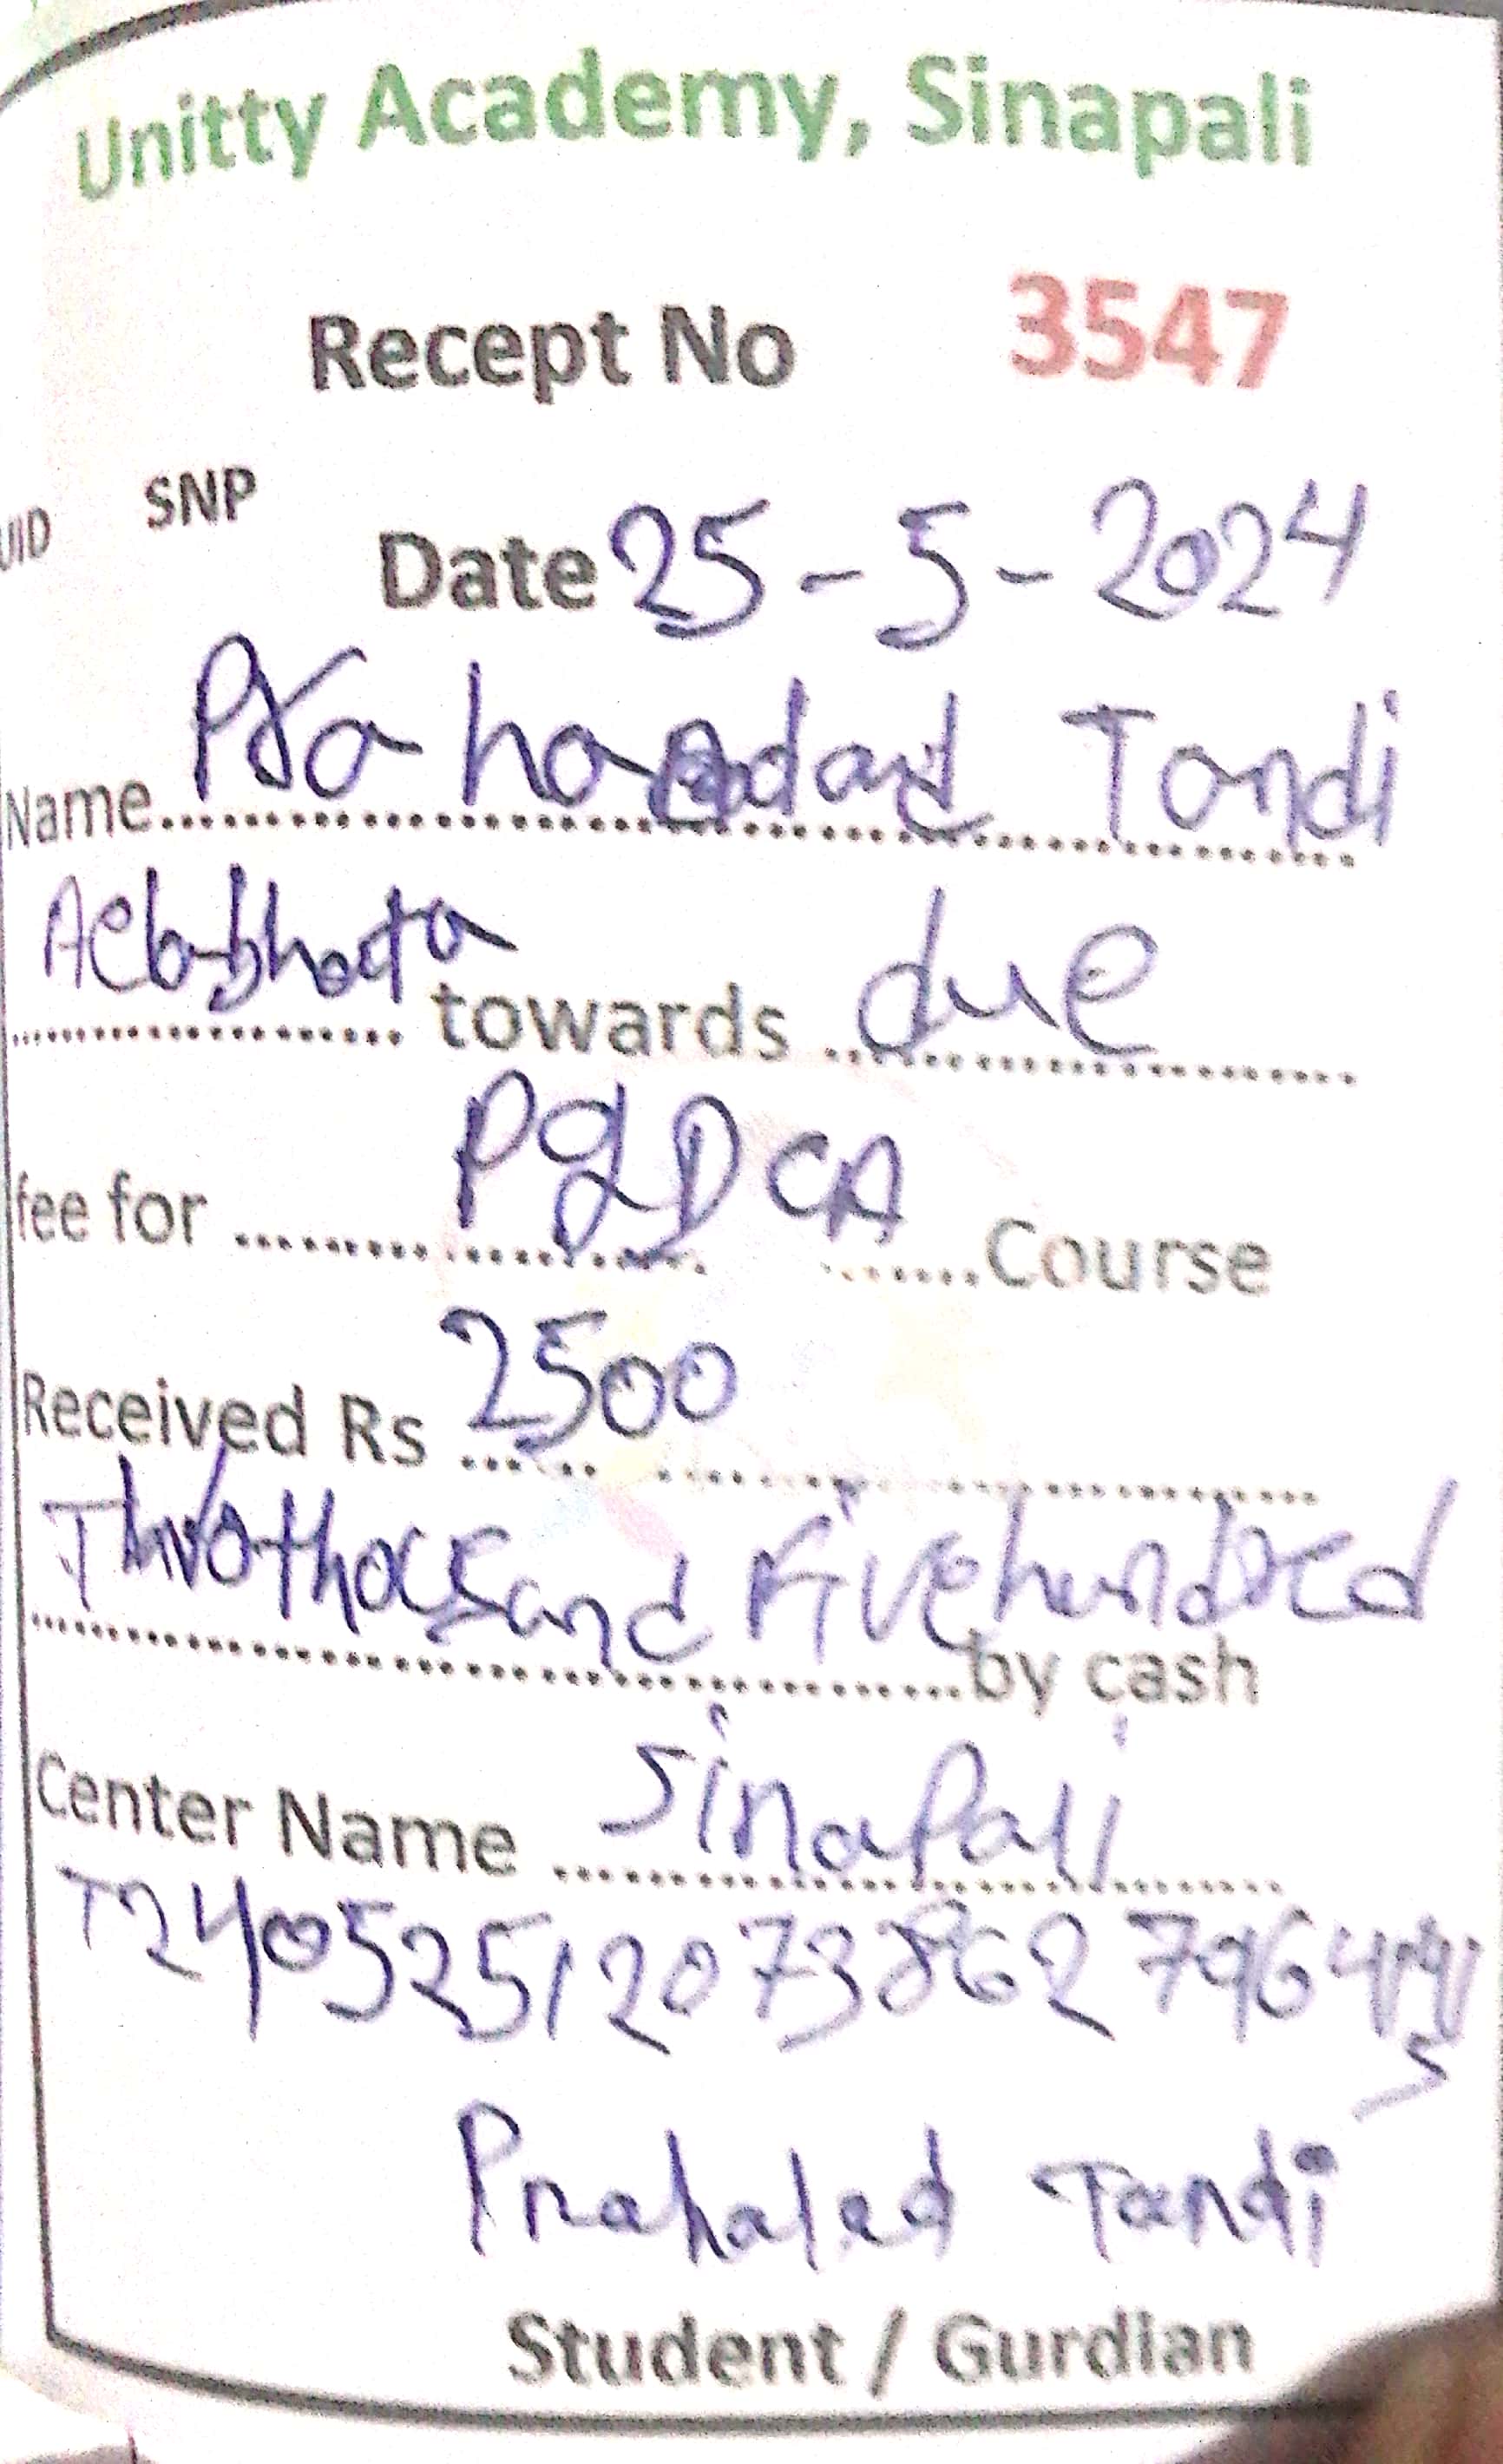 Unitty Academy, Sinapali
Recept No 3547
UID SNP
Date 25-5-2024
Name Tandi
towards due
fee for PGDCA Course
Received Rs 2500
thousand Fivehundred
by cash
Center Name Sinapali
Prahalad Tandi
Student / Gurdian